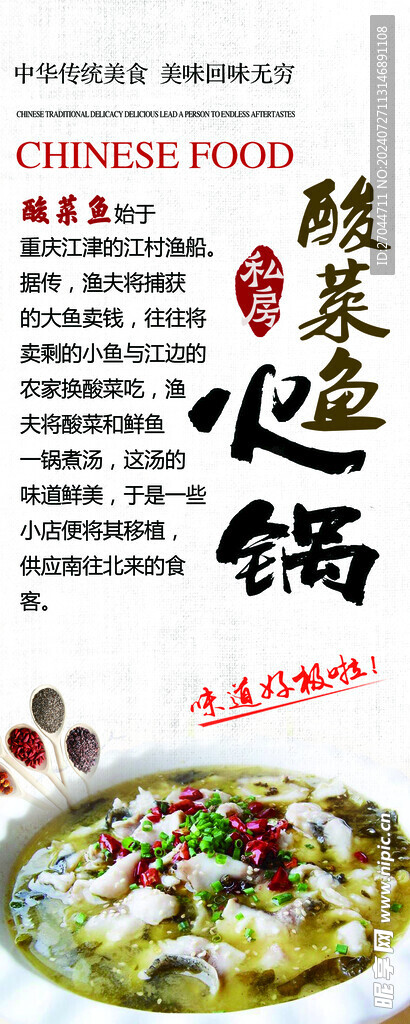 中华传统美食 美味回味无穷
CHINESE TRADITIONAL DELICACY DELICIOUS LEAD A PERSON TO ENDLESS AFTERTASTES
CHINESE FOOD
酸菜鱼始于
重庆江津的江村渔船。
据传，渔夫将捕获
的大鱼卖钱，往往将
卖剩的小鱼与江边的
农家换酸菜吃，渔
夫将酸菜和鲜鱼
一锅煮汤，这汤的
味道鲜美，于是一些
小店便将其移植，
供应南往北来的食
客。
私房
酸菜鱼
火锅
味道好极啦！
ID:27044711 NO:20240727113146891108
昵享网 www.nipic.cn